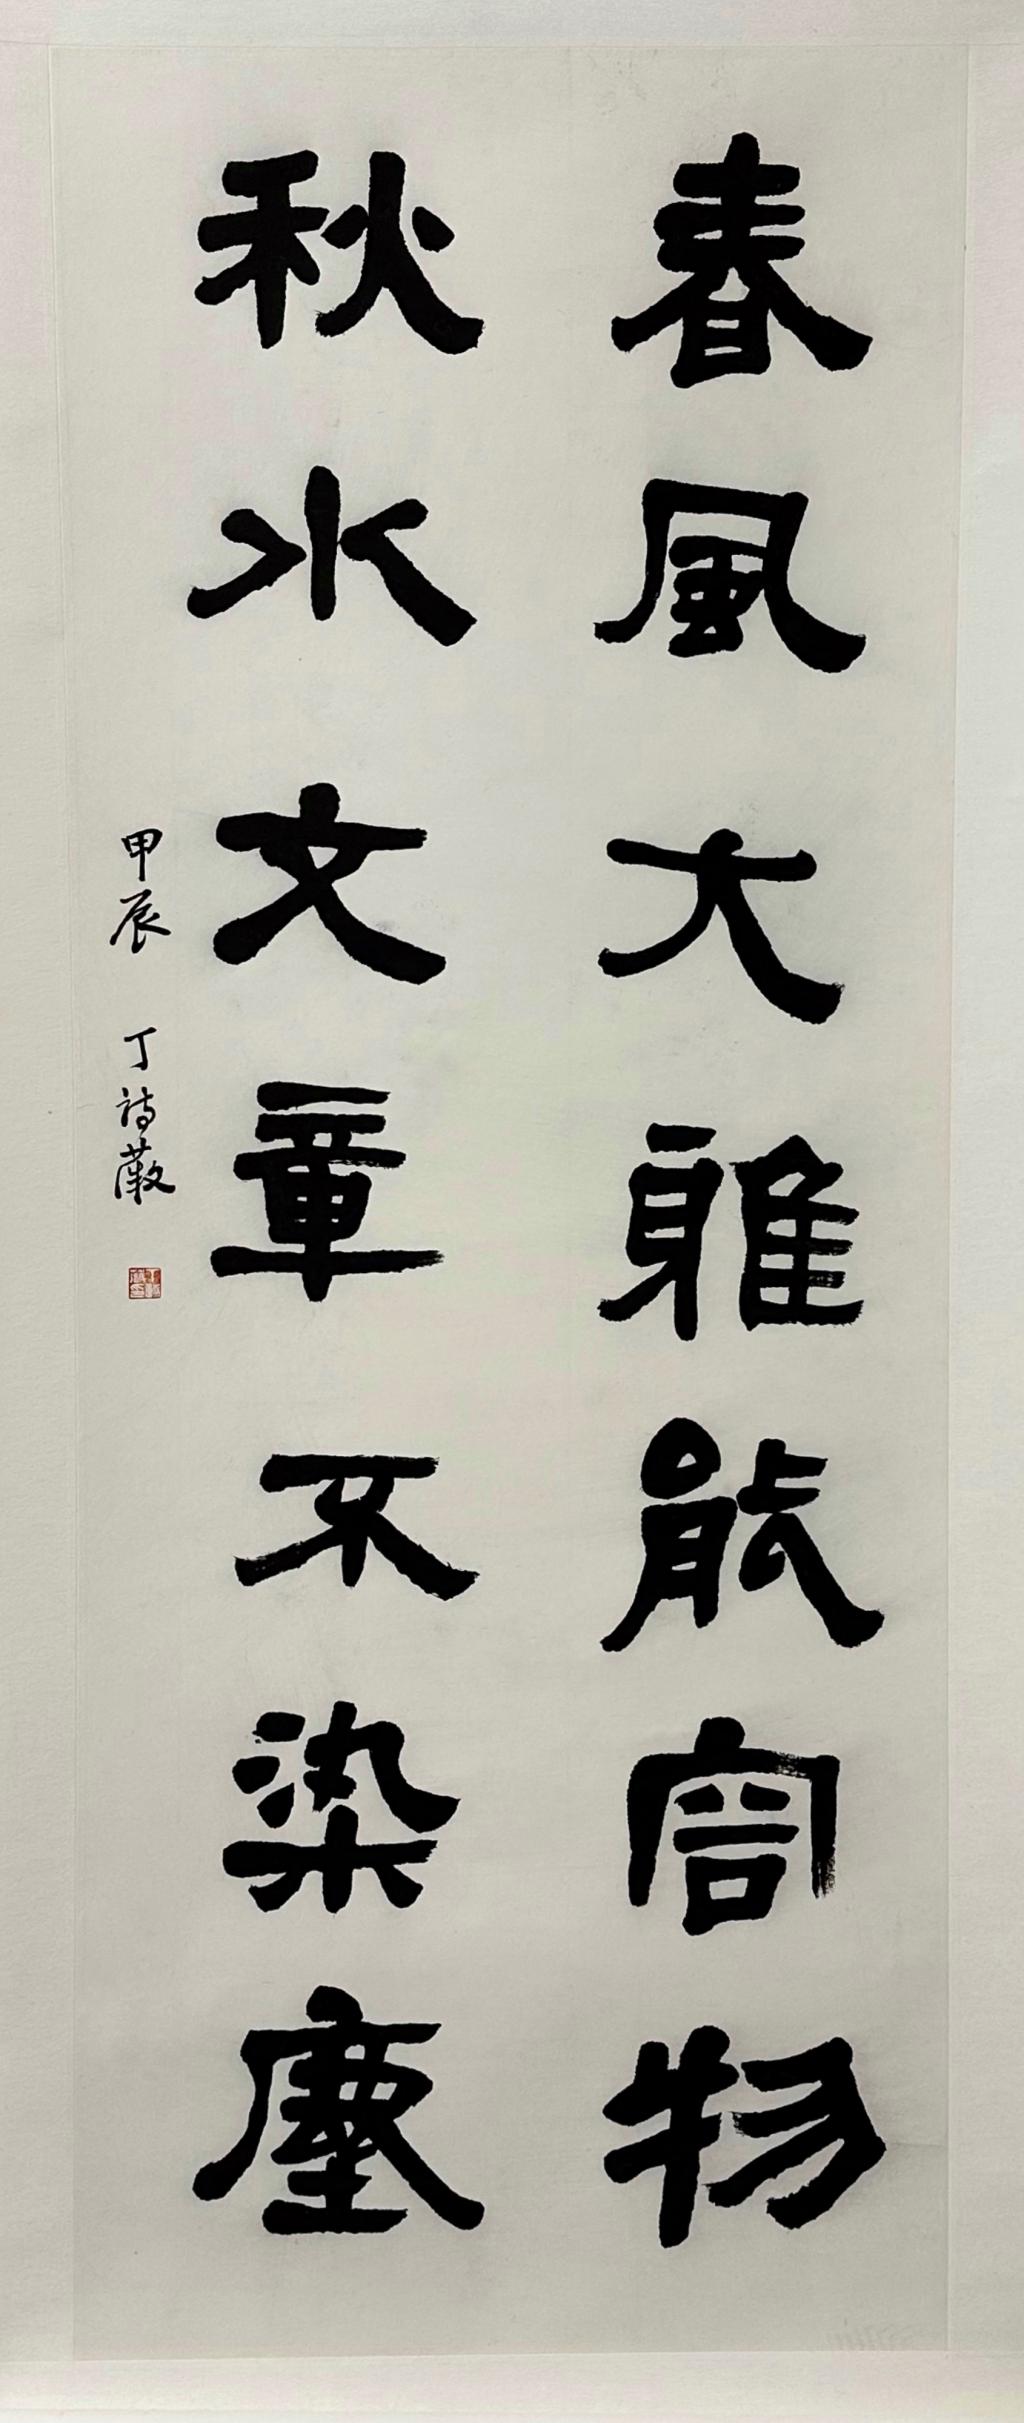 春風大雅能容物
秋水文章不染塵
甲辰 丁詩薇